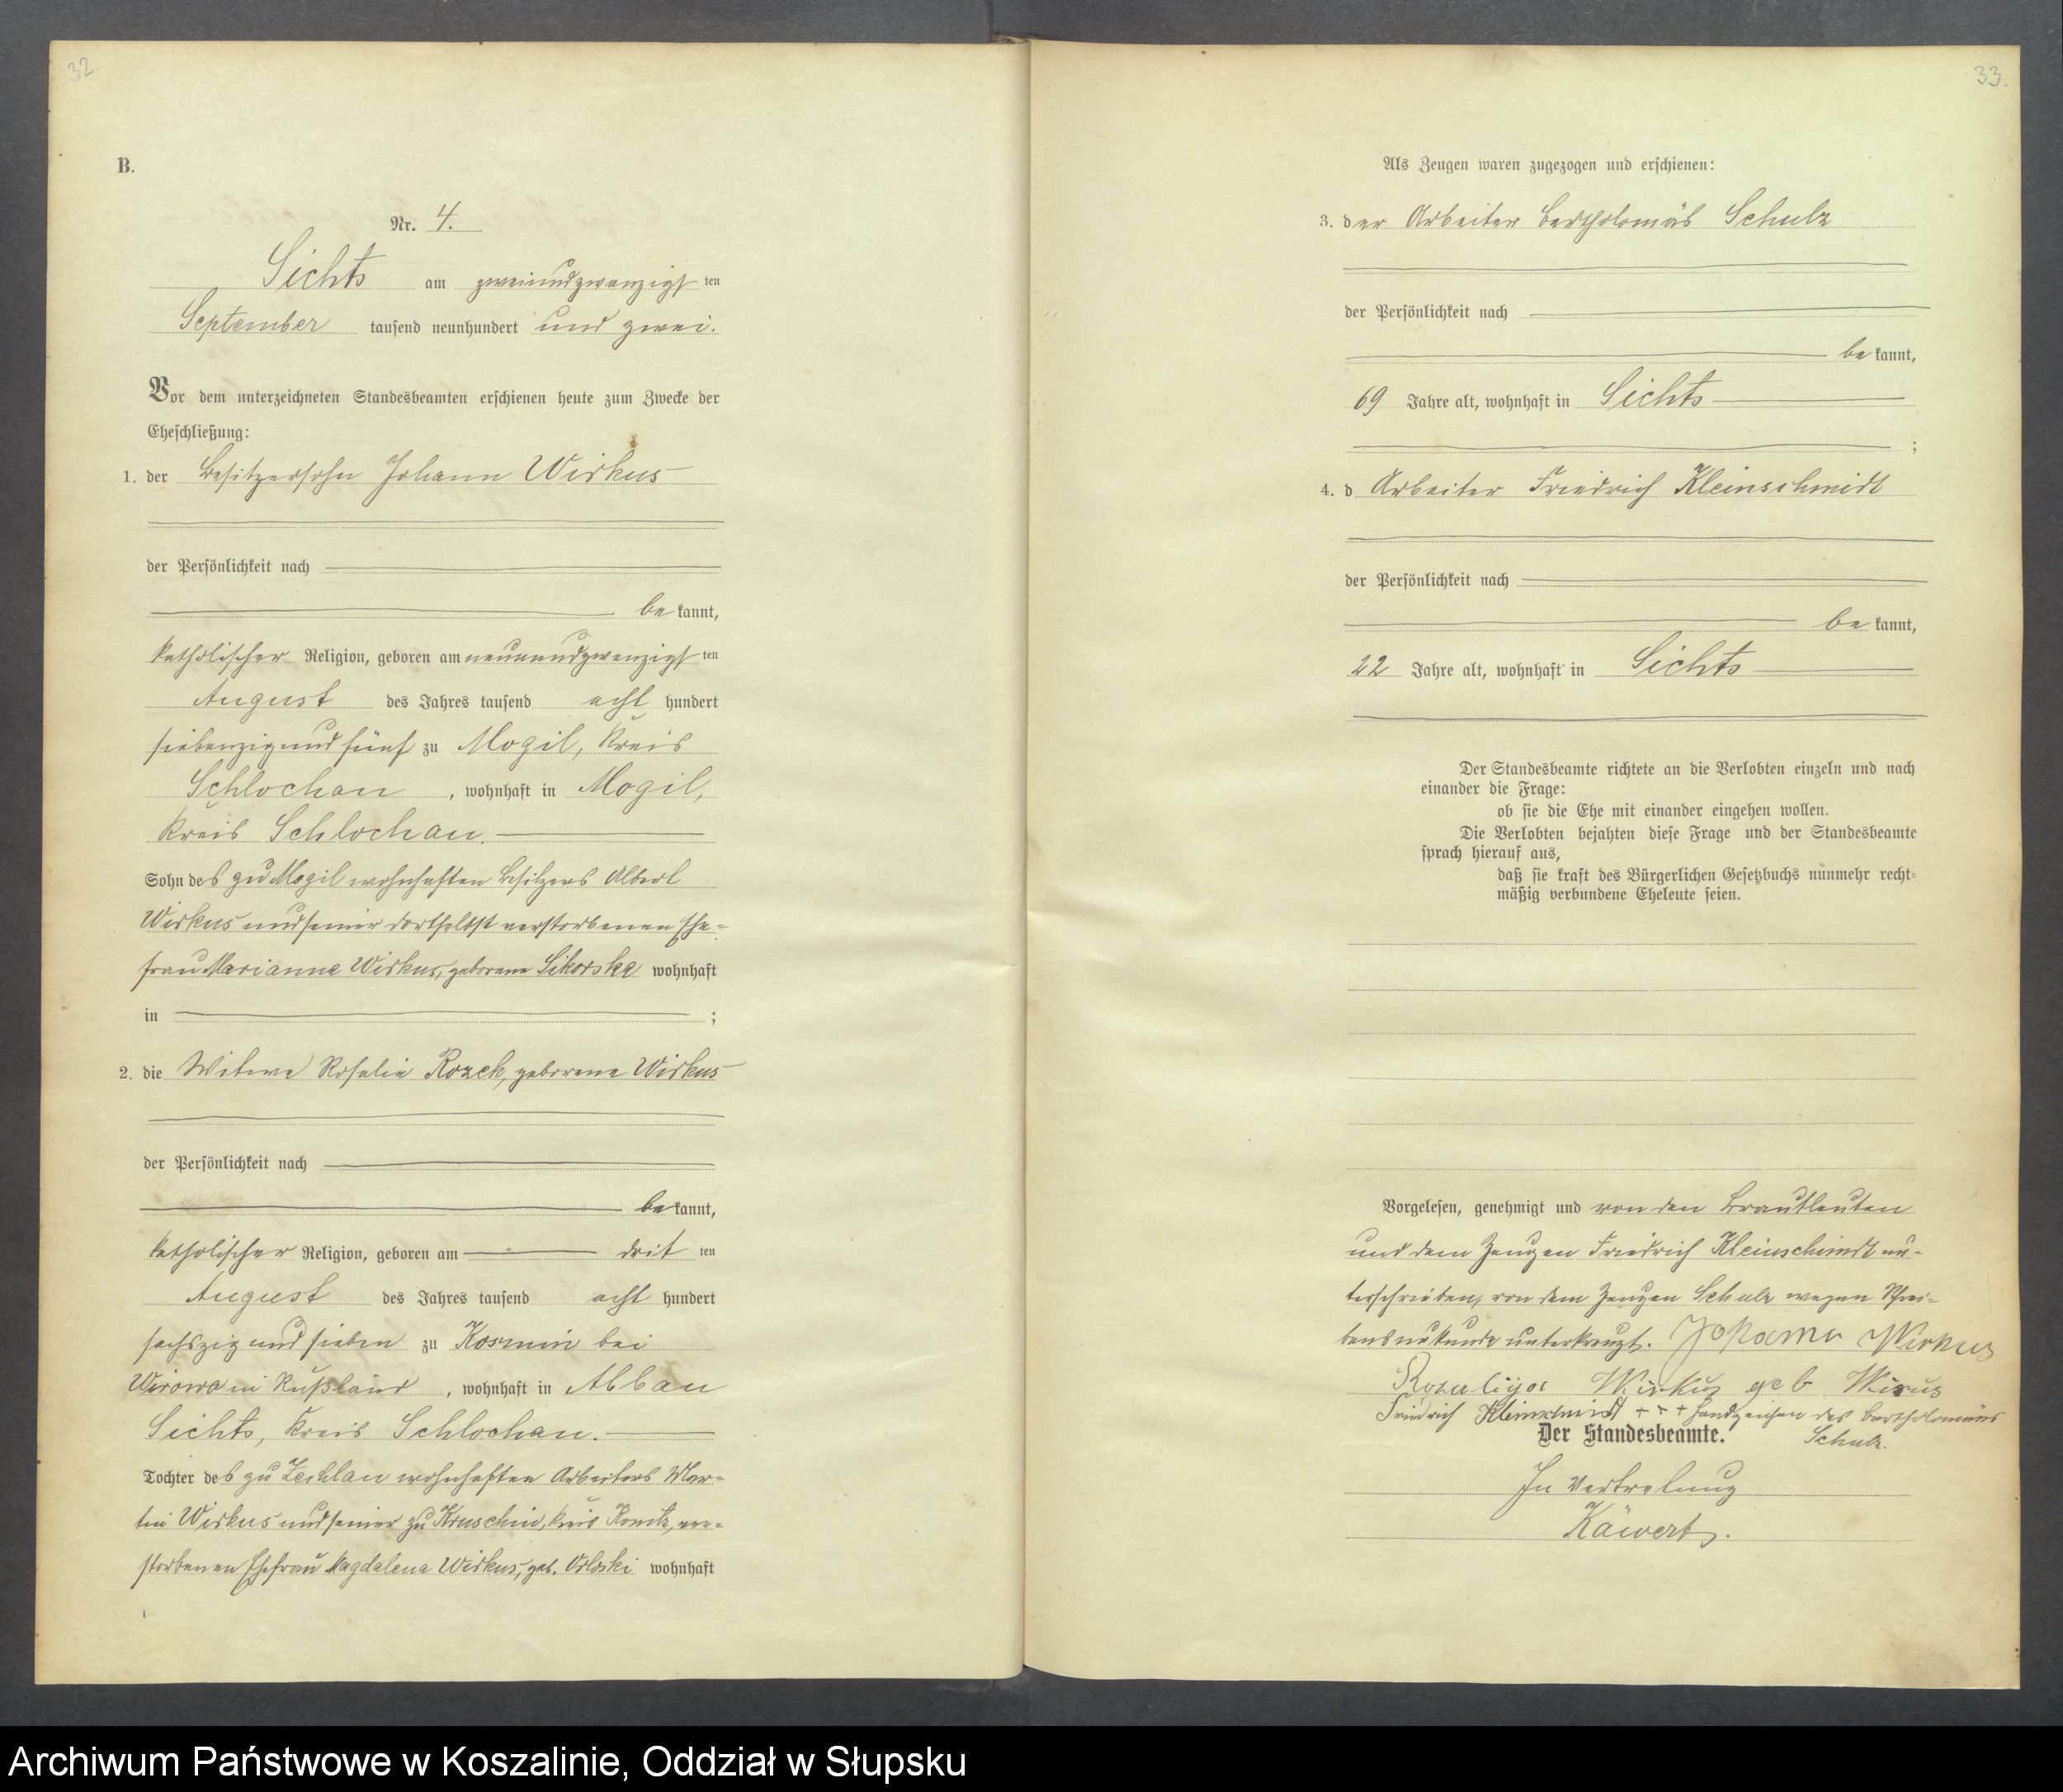 32.
B.
Nr. 4.
Sichts am zweiundzwanzigsten
September tausend neunhundert und zwei.
Vor dem unterzeichneten Standesbeamten erschienen heute zum Zwecke der
Eheschließung:
1. der Besitzersohn Johann Wirkus
der Persönlichkeit nach
be kannt,
katholischer Religion, geboren am neunundzwanzigsten
August des Jahres tausend acht hundert
siebenzig und fünf zu Mogil, Kreis
Schlochau, wohnhaft in Mogil,
Kreis Schlochau.
Sohn des zu Mogil wohnhaften Besitzers Albert
Wirkus und seiner dortselbst verstorbenen Ehe=
frau Marianna Wirkus, geborene Sikorska wohnhaft
in ;
2. die Witwe Rosalie Rozek, geborene Wirkus
der Persönlichkeit nach
be kannt,
katholischer Religion, geboren am dritten
August des Jahres tausend acht hundert
sechszig und sieben zu Kosmin bei
Wirowa in Rußland, wohnhaft in Abbau
Sichts, Kreis Schlochau.
Tochter des zu Zechlau wohnhaften Arbeiters Mar=
tin Wirkus und seiner zu Kruschin, Kreis Konitz, ver=
storbenen Ehefrau Magdalena Wirkus, geb. Orloski wohnhaft
33.
Als Zeugen waren zugezogen und erschienen:
3. der Arbeiter Bartholomäus Schulz
der Persönlichkeit nach
be kannt,
69 Jahre alt, wohnhaft in Sichts
;
4. d Arbeiter Friedrich Kleinschmidt
der Persönlichkeit nach
be kannt,
22 Jahre alt, wohnhaft in Sichts
Der Standesbeamte richtete an die Verlobten einzeln und nach
einander die Frage:
ob sie die Ehe mit einander eingehen wollen.
Die Verlobten bejahten diese Frage und der Standesbeamte
sprach hierauf aus,
daß sie kraft des Bürgerlichen Gesetzbuchs nunmehr recht=
mäßig verbundene Eheleute seien.
Vorgelesen, genehmigt und von den Brautleuten
und dem Zeugen Friedrich Kleinschmidt un=
terschrieben, von dem Zeugen Schulz wegen Schrei=
bensunkunde unterkreuzt. Wirkus
Wirkus geb
Friedrich Kleinschmidt + + + Handzeichen des Bartholomäus
Schulz.
Der Standesbeamte.
In Vertretung
Käwert.
Archiwum Państwowe w Koszalinie, Oddział w Słupsku